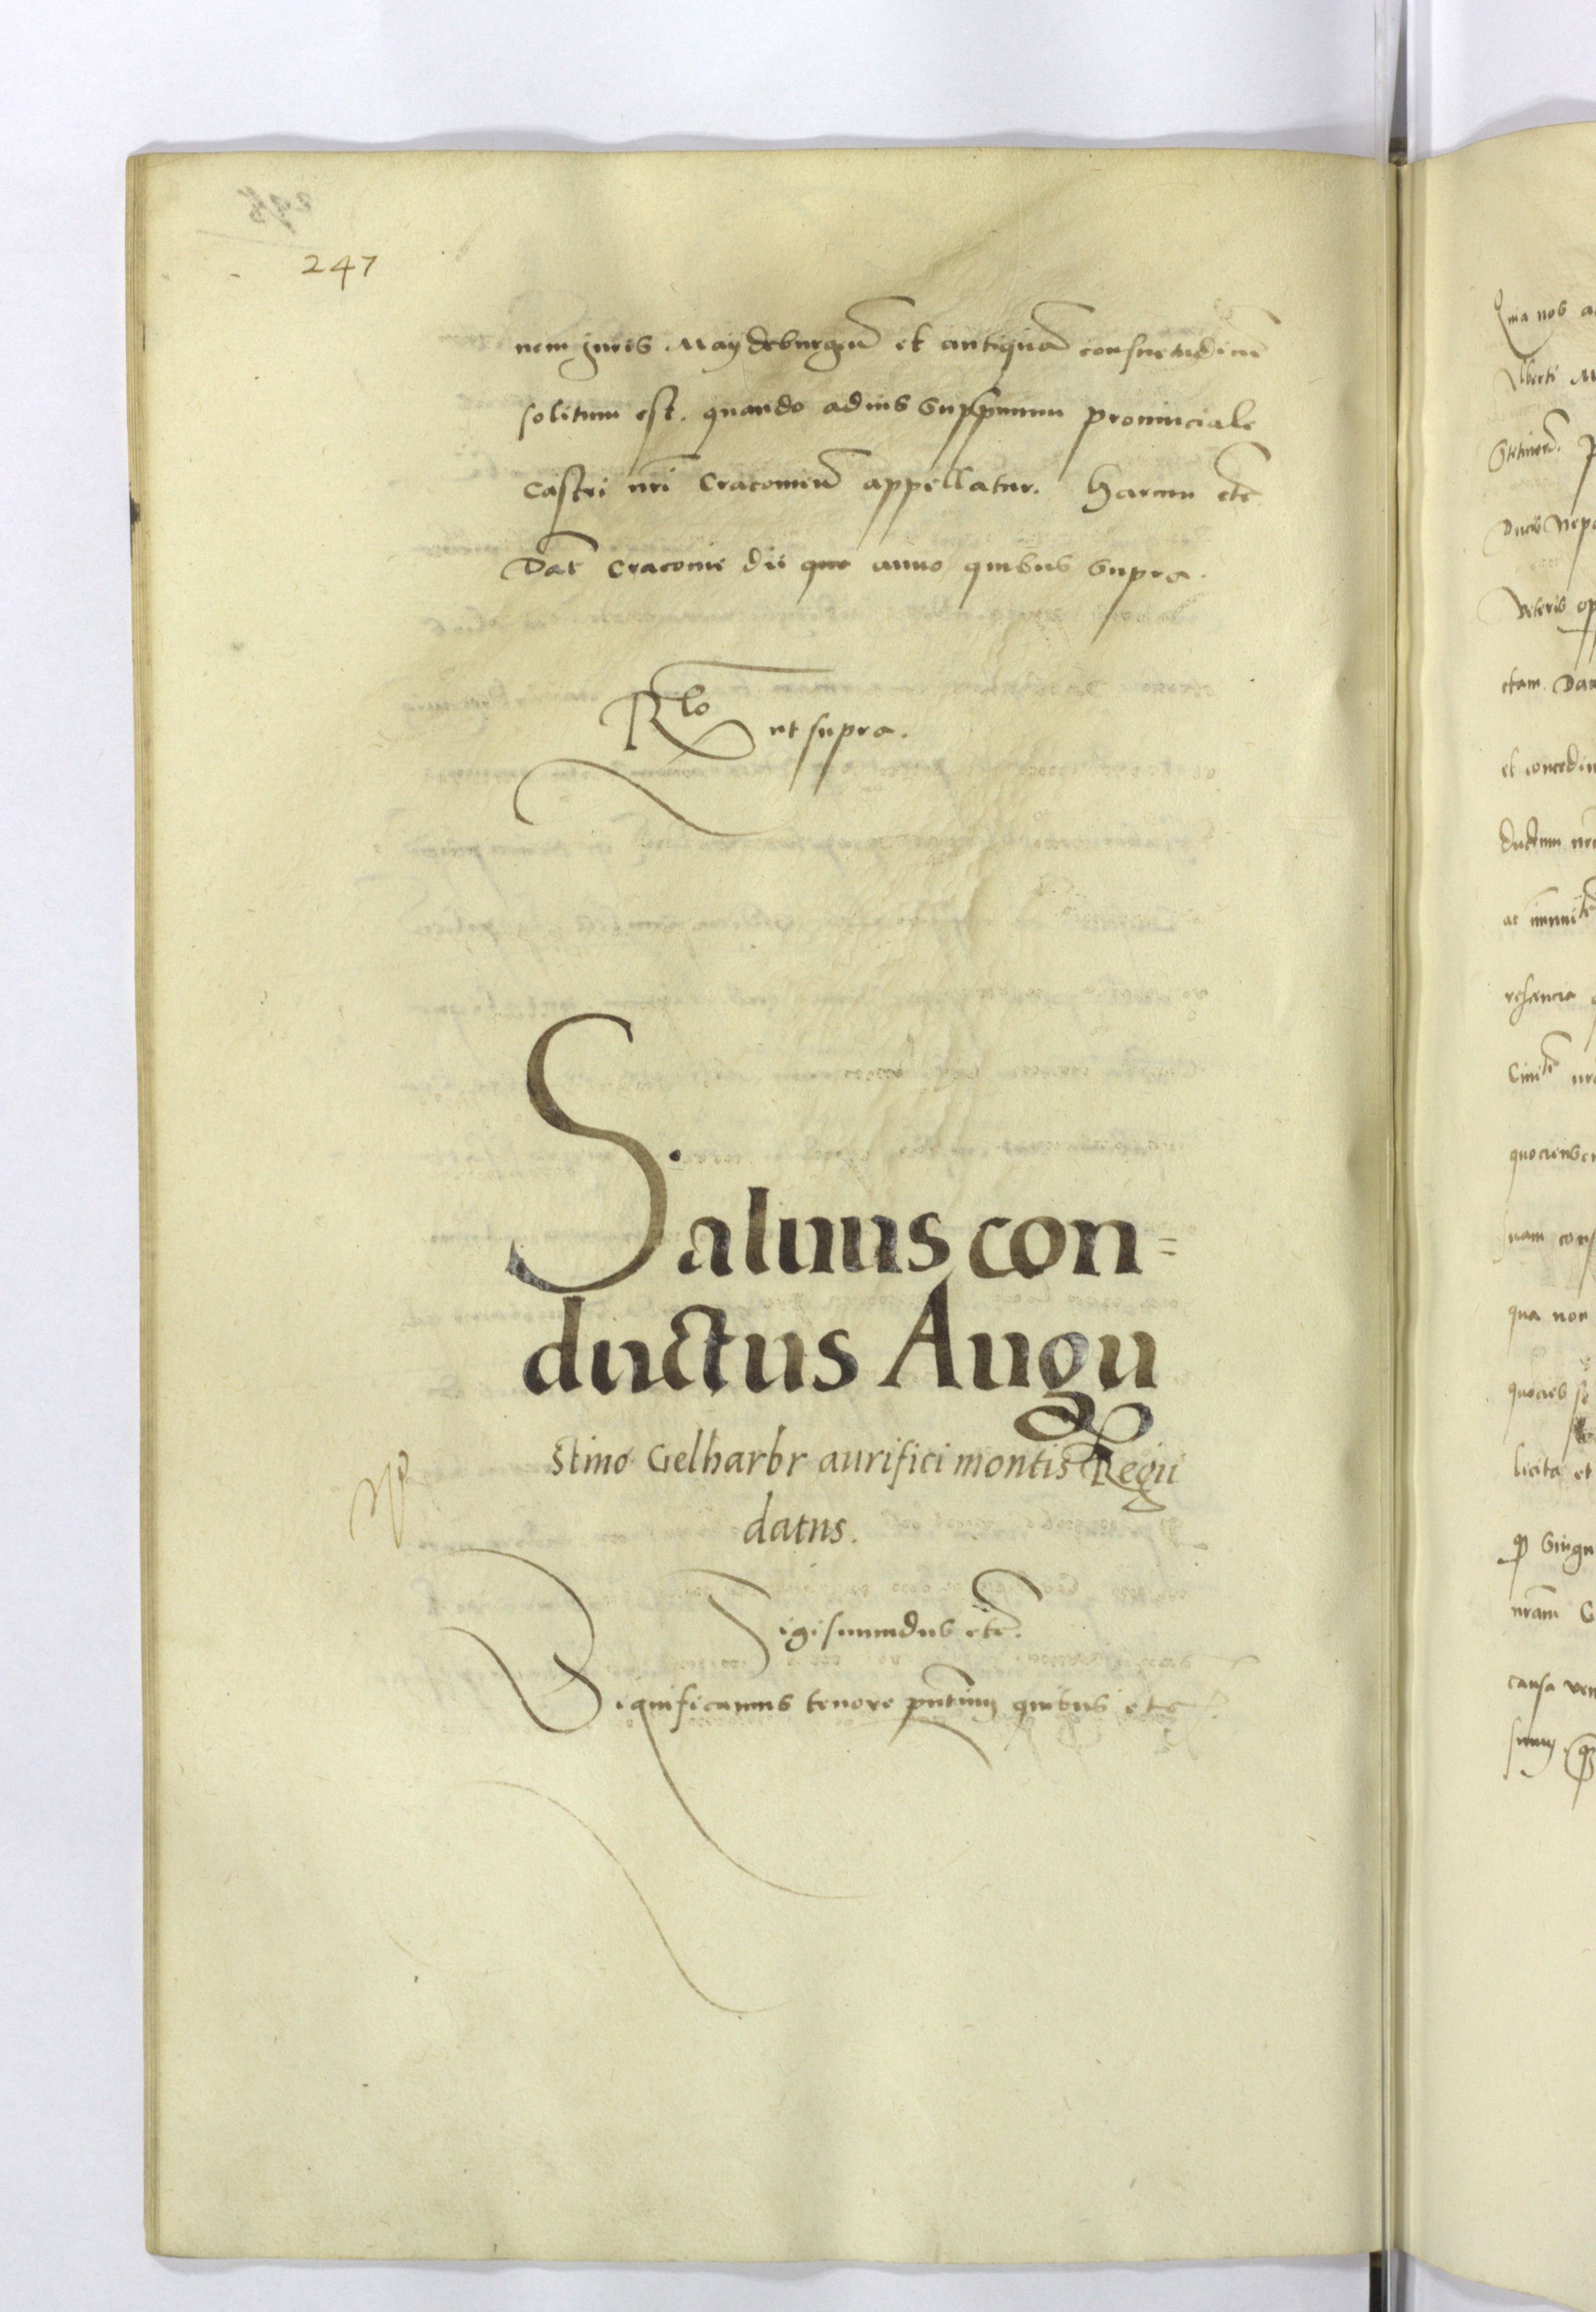 247
nem juris Maydeburgen̄ et antiquā consuetudinē
solitum est. quando ad ius suppremum prouinciale
castri nr̄i Cracouien̄ appellatur. Harum etc̄
Dat̄ Cracouie die que anno quibus supra.
Rlo ut supra.
Saluus con=
ductus Augu
stino Gelharbr aurifici montis Regii
datus.
Sigismundus etc̄.
Significamus tenore pn̄tium quibus etc.
Quia nob
Alberti
ducis
veteris
etiam
et conced
ductum
ac
Ciui
quociens
suam
qua non
quocies se
licita et
nr̄am
causa